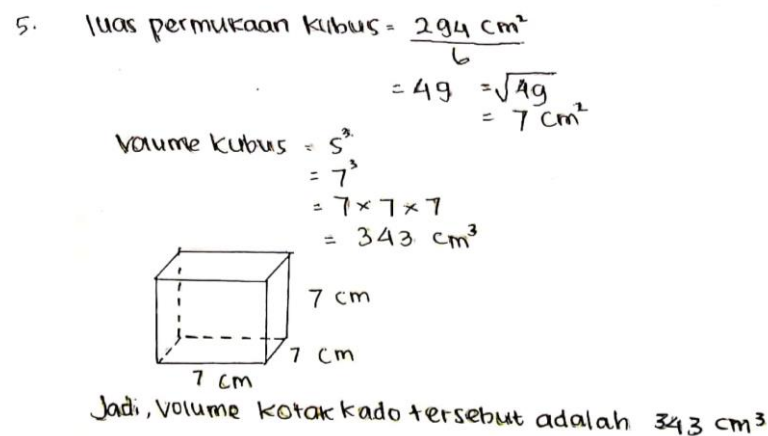 5. luas permukaan kubus = 294 cm²
6
= 49 = √49
= 7 cm²
Volume kubus = s³
= 7³
= 7 × 7 × 7
= 343 cm³
7 cm
7 cm
7 cm
Jadi, volume kotak kado tersebut adalah 343 cm³